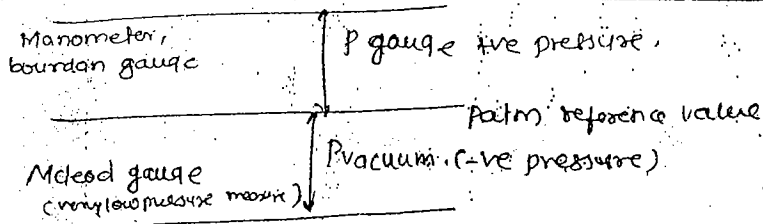 Manometer,
bourdan gauge
P gauge +ve pressure.
Patm reference value
Mcleod gauge
(very low pressure measure)
Pvacuum. (-ve pressure)